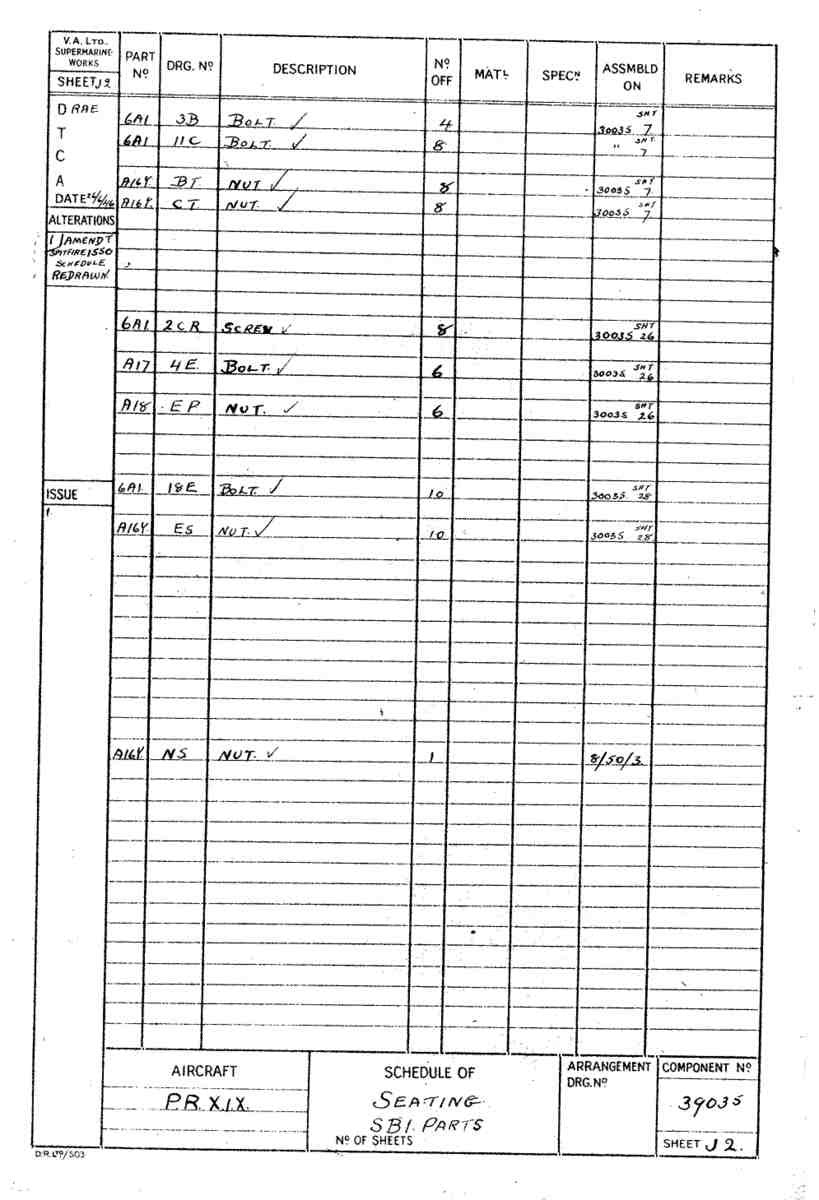 V.A. LTD. SUPERMARINE WORKS
SHEET J2
PART Nº DRG. Nº DESCRIPTION Nº OFF MATL SPECN ASSMBLD ON REMARKS
D RAE
T
C
A
DATE
ALTERATIONS
1 AMENDT
SPITFIRE 1550
SCHEDULE
REDRAWN.
6A1 3B BOLT. ✓ 4 30035 SHT 7
6A1 11C BOLT. ✓ 8 " SHT. 7
A16Y. BT. NUT ✓ 8 30035 SHT 7
A16Y. CT. NUT. ✓ 8 30035 SHT 7
6A1. 2CR SCREW ✓ 8 30035 SHT 26
A17 4E. BOLT. ✓ 6 30035 SHT 26
A18 EP NUT. ✓ 6 30035 SHT 26
ISSUE
1.
6A1. 18E BOLT. ✓ 10 30035 SHT 28
A16Y. ES NUT. ✓ 10 30035 SHT 28
A16Y. NS NUT. ✓ 1 8/50/3
AIRCRAFT
P.R. X.I.X.
SCHEDULE OF
SEATING
SBI. PARTS
Nº OF SHEETS
ARRANGEMENT DRG. Nº
COMPONENT Nº
39035
SHEET J2.